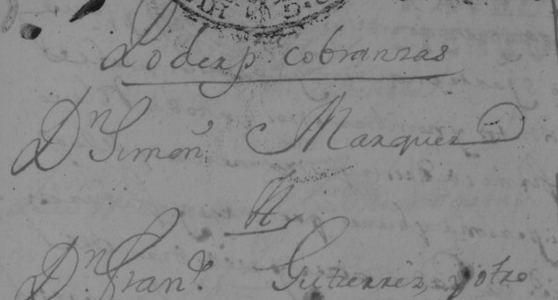 Poder pª cobranzas
Dn Simon Marquez
A
Dn Franᶜᵒ Gutierrez, y otro